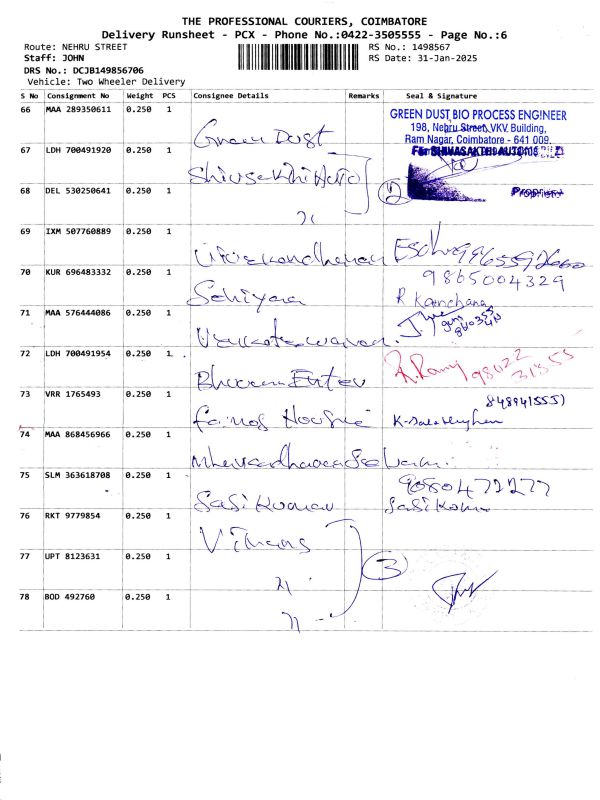 THE PROFESSIONAL COURIERS, COIMBATORE
Delivery Runsheet - PCX - Phone No.:0422-3505555 - Page No.:6
Route: NEHRU STREET
RS No.: 1498567
Staff: JOHN
RS Date: 31-Jan-2025
DRS No.: DCJB149856706
Vehicle: Two Wheeler Delivery
S No Consignment No Weight PCS Consignee Details Remarks Seal & Signature
66 MAA 289350611 0.250 1 Green Dust
GREEN DUST BIO PROCESS ENGINEER
198, Nehru Street, VKV Building,
Ram Nagar, Coimbatore - 641 009.
67 LDH 700491920 0.250 1
For SHIVASAKTHI AUTO
68 DEL 530250641 0.250 1 2
Proprietor
69 IXM 507760889 0.250 1
9865004329
70 KUR 696483332 0.250 1
R Kanchana
71 MAA 576444086 0.250 1
72 LDH 700491954 0.250 1
R. Ramy 98022
31555
73 VRR 1765493 0.250 1
74 MAA 868456966 0.250 1
75 SLM 363618708 0.250 1 Sasi Kumar
9080472277
Sasi Kumar
76 RKT 9779854 0.250 1
77 UPT 8123631 0.250 1 3
78 BOD 492760 0.250 1